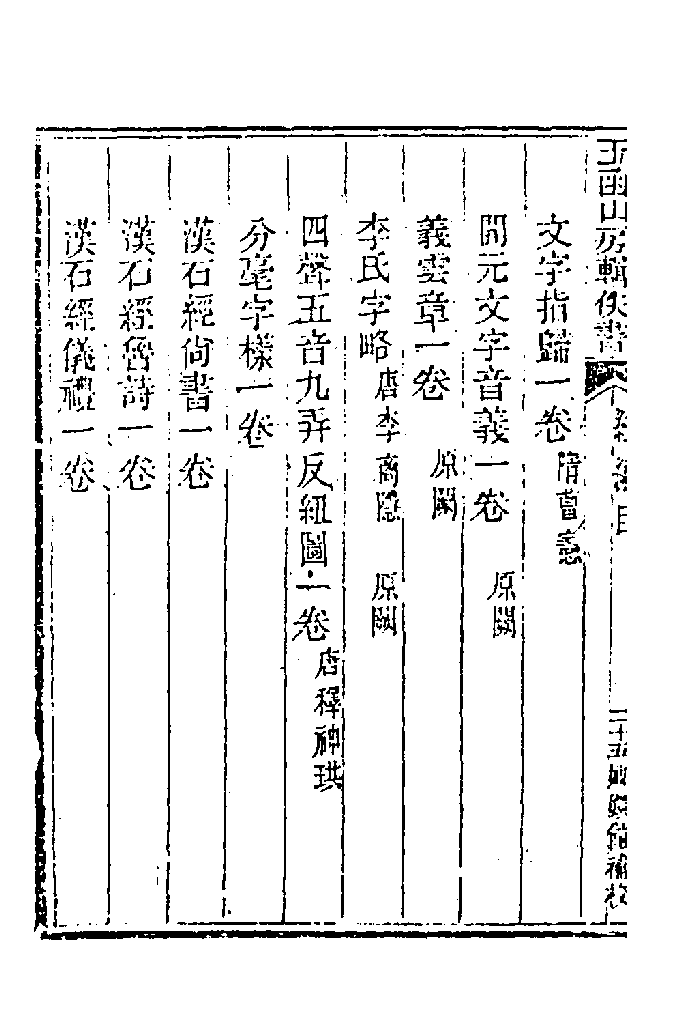 玉函山房輯佚書
文字指歸一卷 隋曹憲
開元文字音義一卷 原闕
義雲章一卷 原闕
李氏字略 唐李商隱 原闕
四聲五音九弄反紐圖一卷 唐釋神珙
分毫字樣一卷
漢石經尚書一卷
漢石經魯詩一卷
漢石經儀禮一卷